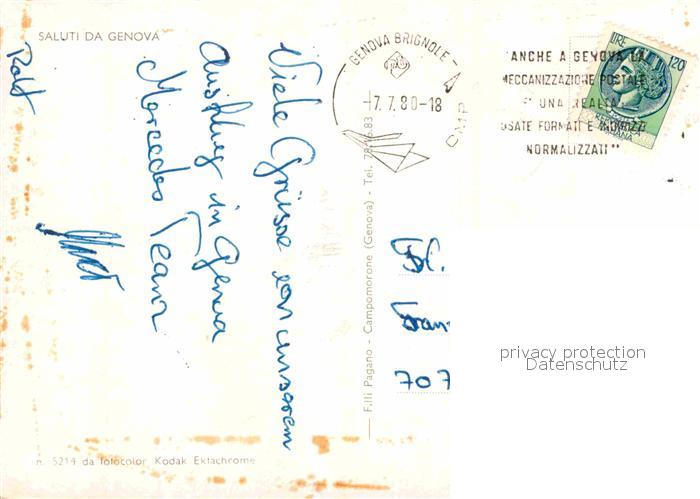 SALUTI DA GENOVA
GENOVA BRIGNOLE
-7. 7. 80-18
CMP
"ANCHE A GENOVA LA
MECCANIZZAZIONE POSTALE
E' UNA REALTA'
USATE FORMATI E INDIRIZZI
NORMALIZZATI"
LIRE 120
Viele Grüsse von unserem
Ausflug in Genua
Mercedes Team
Rolf
F.lli Pagano - Campomorone (Genova) - Tel. 78.16.83
707
privacy protection
Datenschutz
n. 5214 da fotocolor Kodak Ektachrome